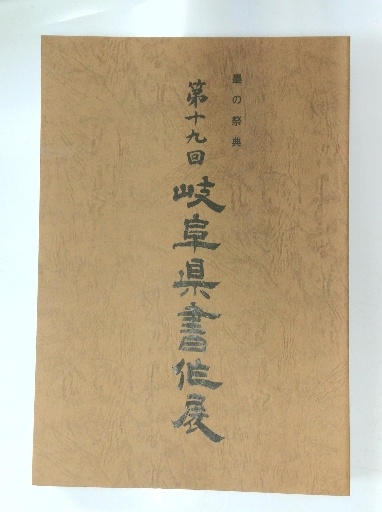 墨の祭典
第十九回
岐阜県書作展